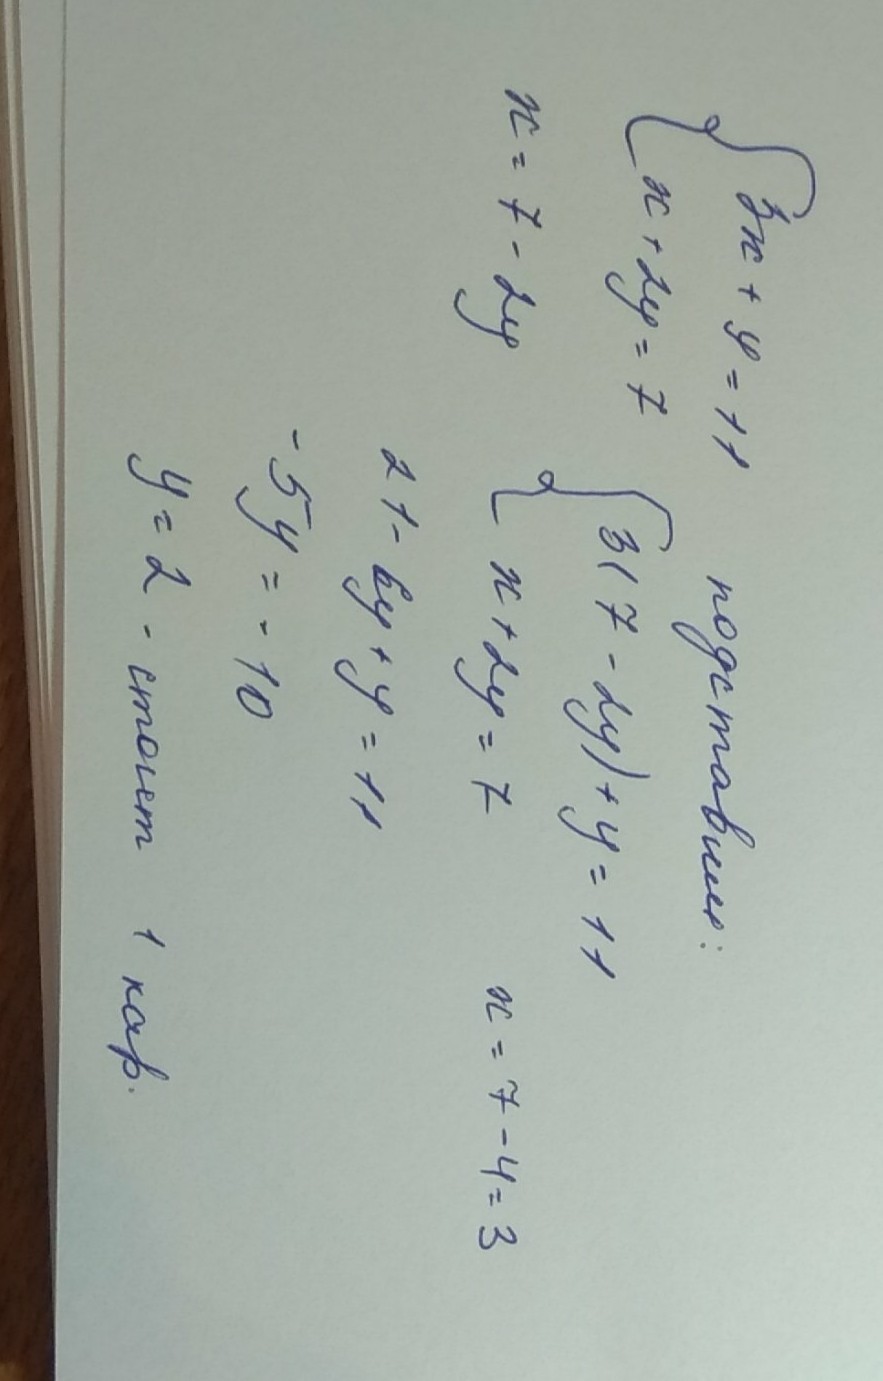 3x + y = 11
x + 2y = 7
x = 7 - 2y
подставим:
3(7 - 2y) + y = 11
x + 2y = 7
x = 7 - 4 = 3
21 - 6y + y = 11
-5y = -10
y = 2 - стоит 1 кар.